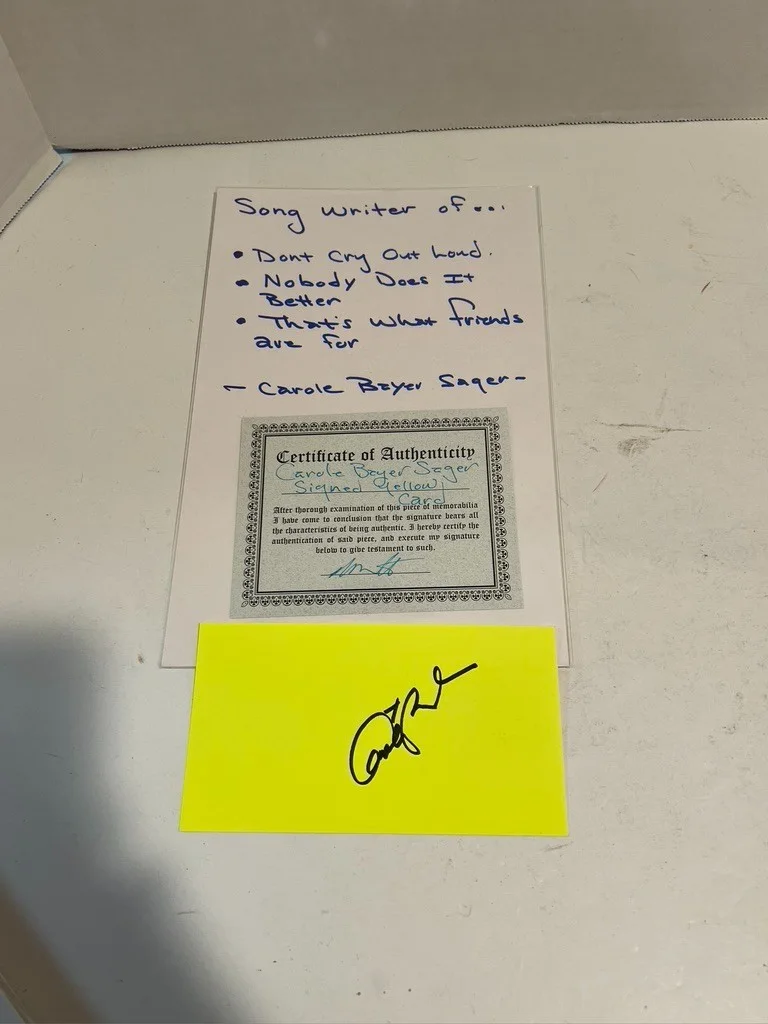 Song writer of...
• Dont Cry Out Loud.
• Nobody Does It
Better
• That's what friends
are for
- Carole Bayer Sager -
Certificate of Authenticity
Carole Bayer Sager
Signed Yellow
Card
After thorough examination of this piece of memorabilia
I have come to conclusion that the signature bears all
the characteristics of being authentic. I hereby certify the
authentication of said piece, and execute my signature
below to give testament to such.